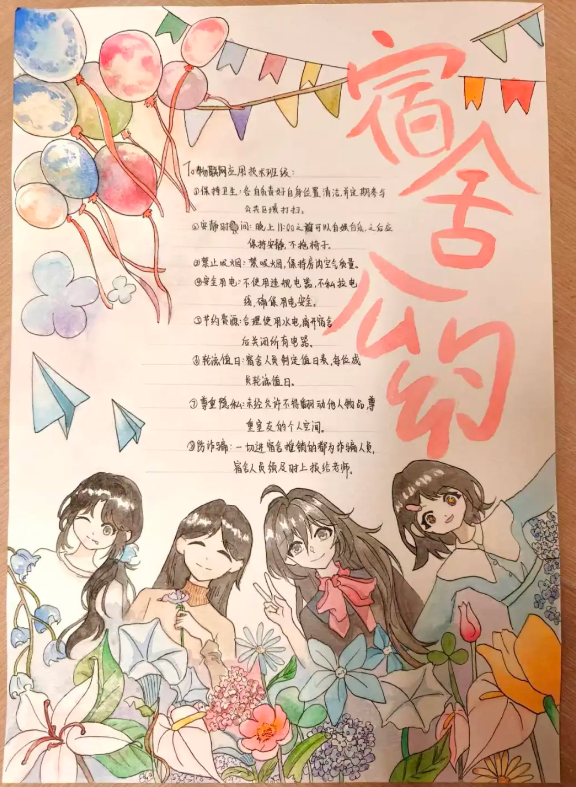 宿舍公约
To物联网应用技术班级:
①保持卫生:各自负责好自身位置清洁,并定期参与
公共区域打扫。
②安静时间:晚上11:00之前可以自娱自乐,之后应
保持安静,不拖椅子。
③禁止吸烟:禁吸烟,保持房内空气质量。
④安全用电:不使用违规电器,不私拉电
线,确保用电安全。
⑤节约资源:合理使用水电,离开宿舍
后关闭所有电器。
⑥轮流值日:宿舍人员制定值日表,每位成
员轮流值日。
⑦尊重隐私:未经允许不得翻动他人物品,尊
重室友的个人空间。
⑧防诈骗:一切进宿舍推销的都为诈骗人员,
宿舍人员须及时上报给老师。